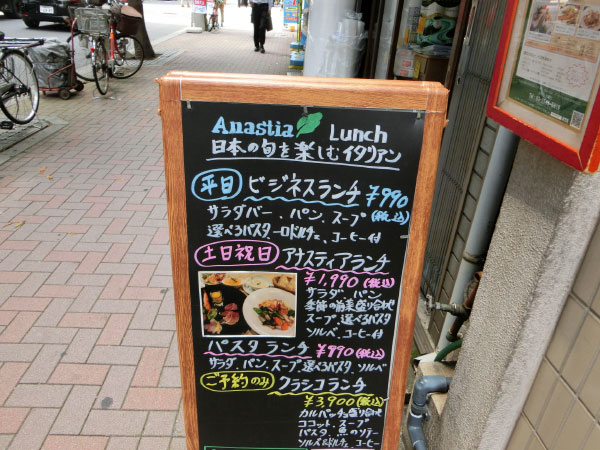 Anastia Lunch
日本の旬を楽しむイタリアン
平日 ビジネスランチ ¥990
サラダバー、パン、スープ (税込)
選べるパスタ 一口ドルチェ、コーヒー付
土日祝日 アナスティアランチ
¥1,990 (税込)
サラダ パン
季節の前菜盛り合わせ
スープ、選べるパスタ
ソルベ、コーヒー付
パスタランチ ¥990 (税込)
サラダ、パン、スープ、選べるパスタ、ソルベ
ご予約のみ クラシコランチ
¥3,900 (税込)
カルパッチョ盛り合わせ
ココット、スープ
パスタ、魚のソテー
ソルベ&ドルチェ、コーヒー